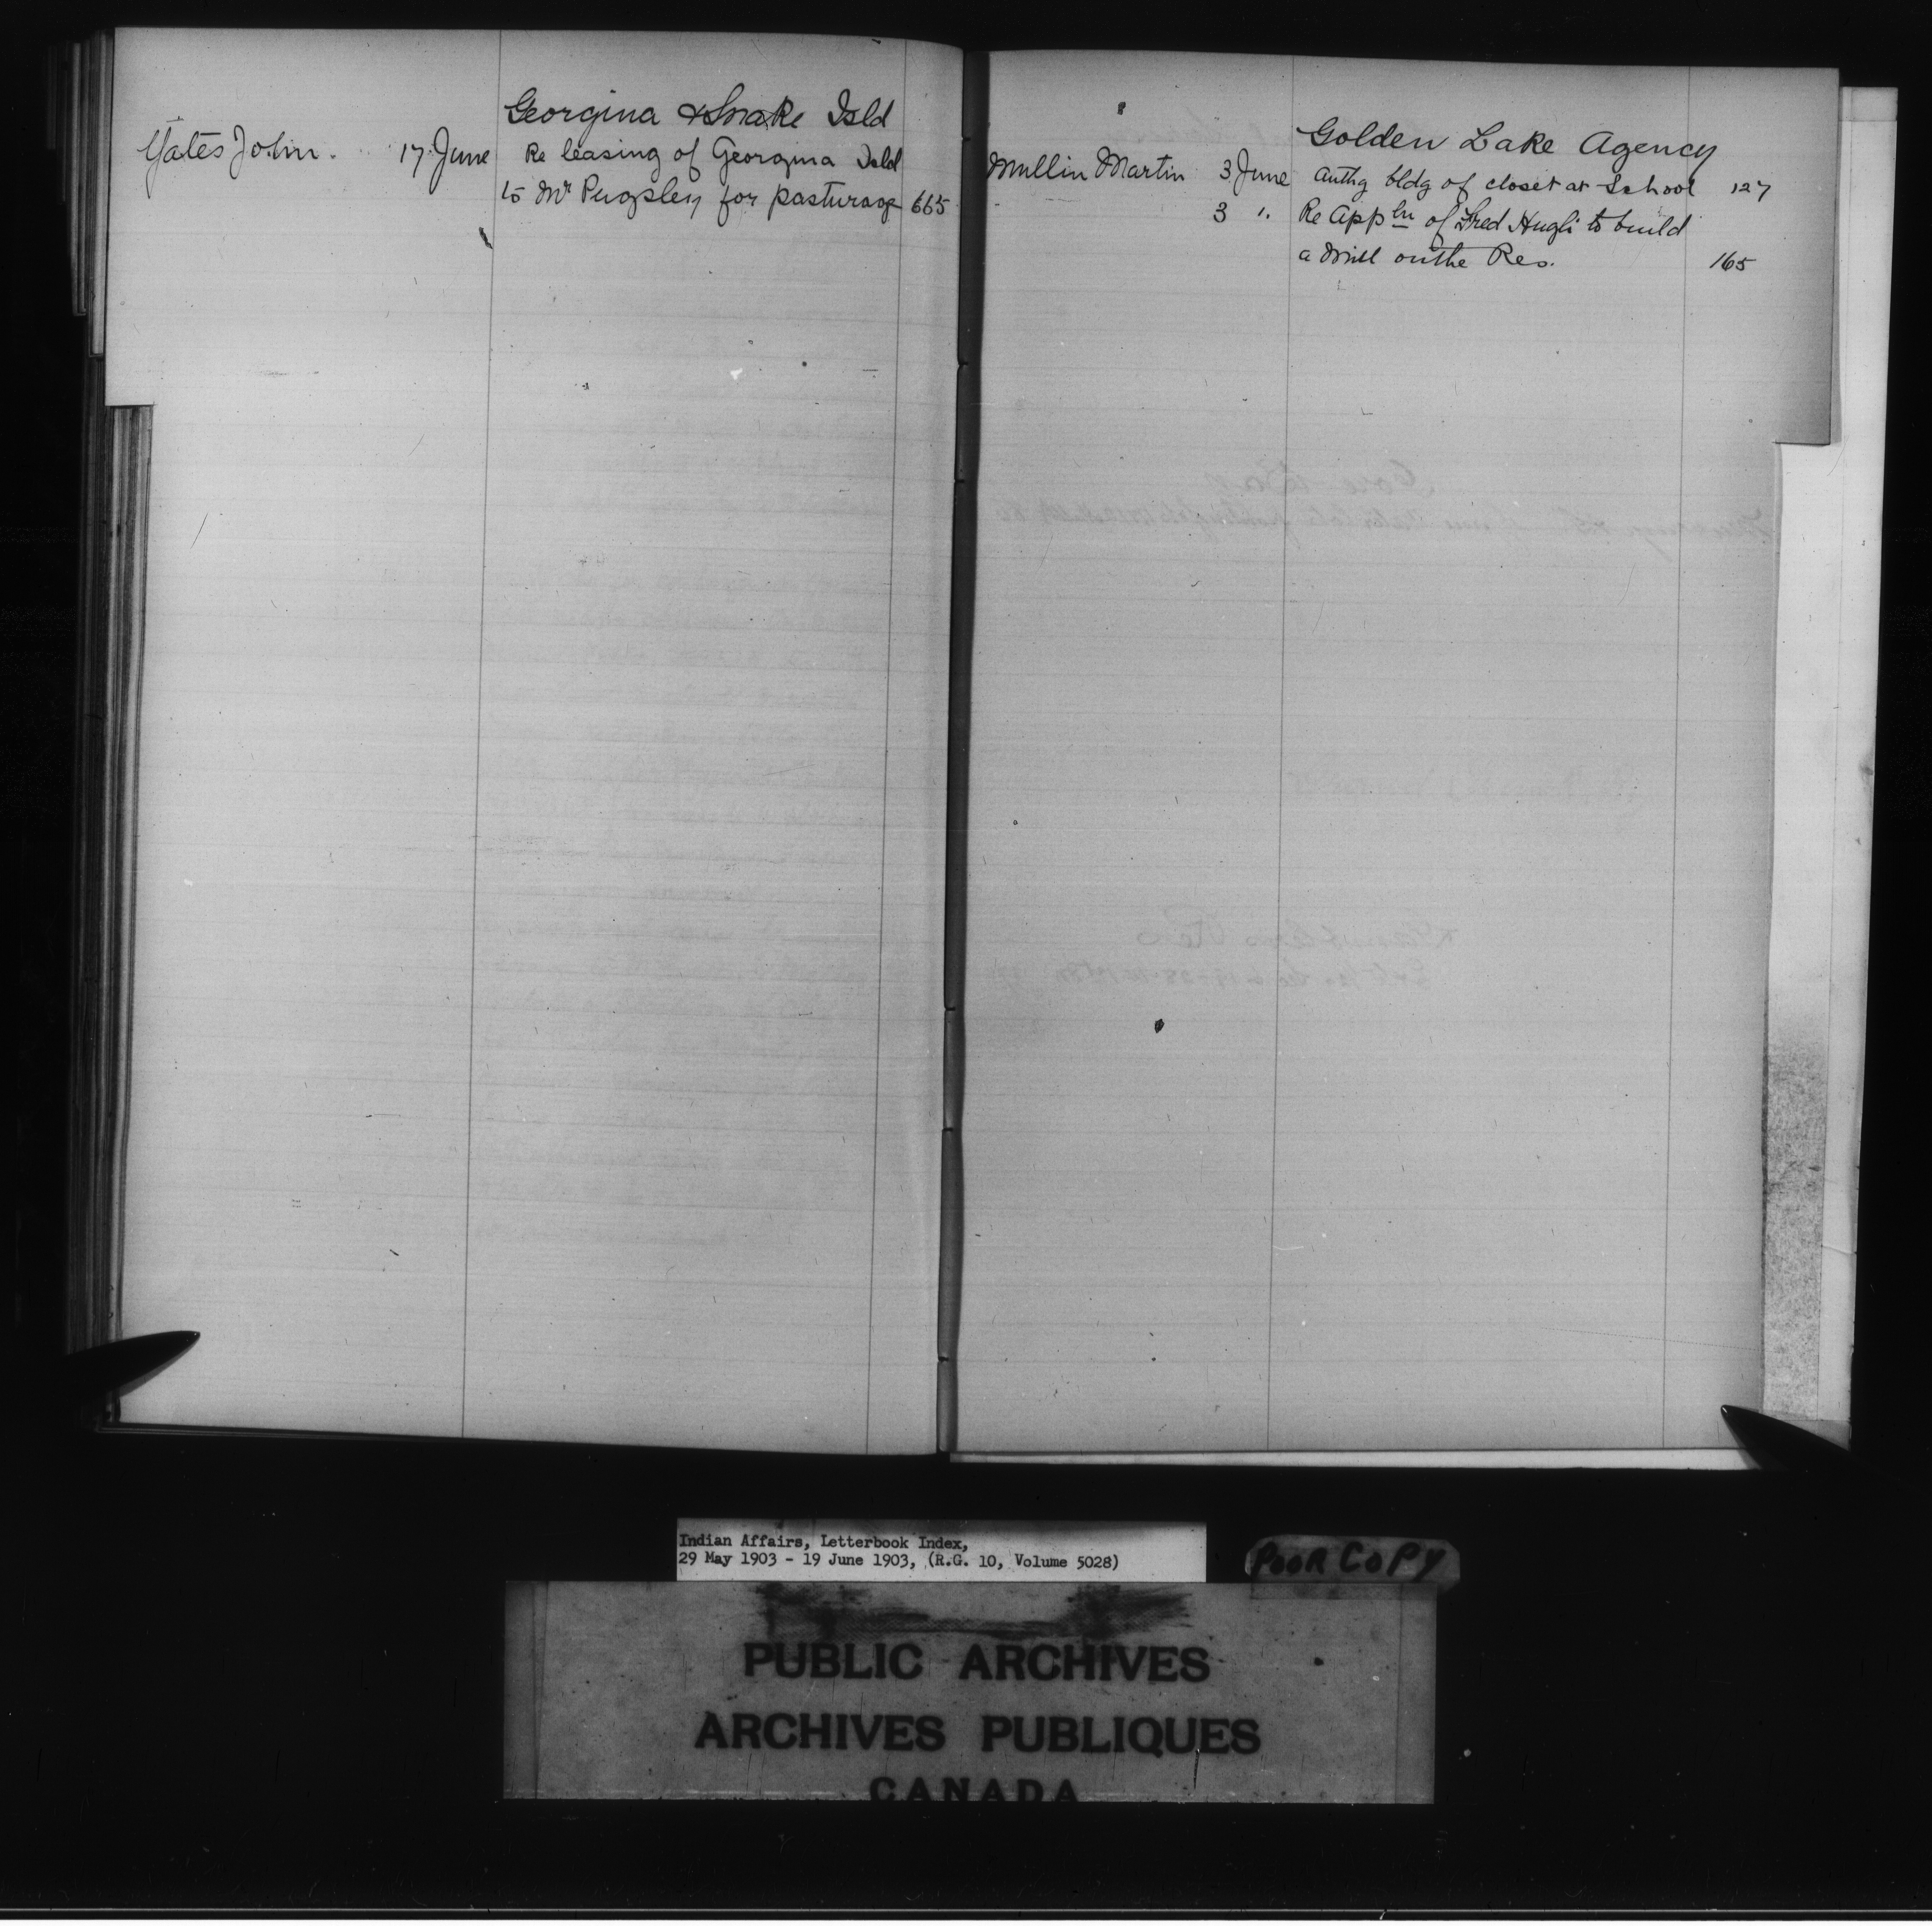 Georgina & Snake Isld
Yates John. 17 June Re leasing of Georgina Isld
to Mr Pugsley for pasturage 665
Golden Lake Agency
Mullin Martin 3 June Authg bldg of closet at School 127
3 ". Re Appln of Fred Hugli to build
a Mill on the Res. 165
Indian Affairs, Letterbook Index,
29 May 1903 - 19 June 1903, (R.G. 10, Volume 5028)
POOR COPY
PUBLIC ARCHIVES
ARCHIVES PUBLIQUES
CANADA